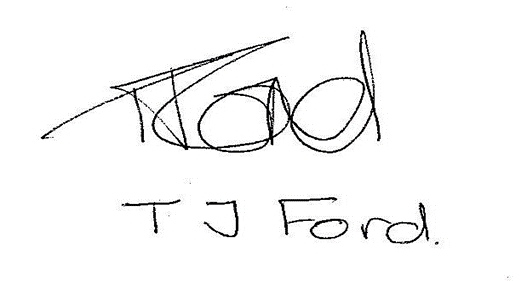 TJ Ford
T J Ford.